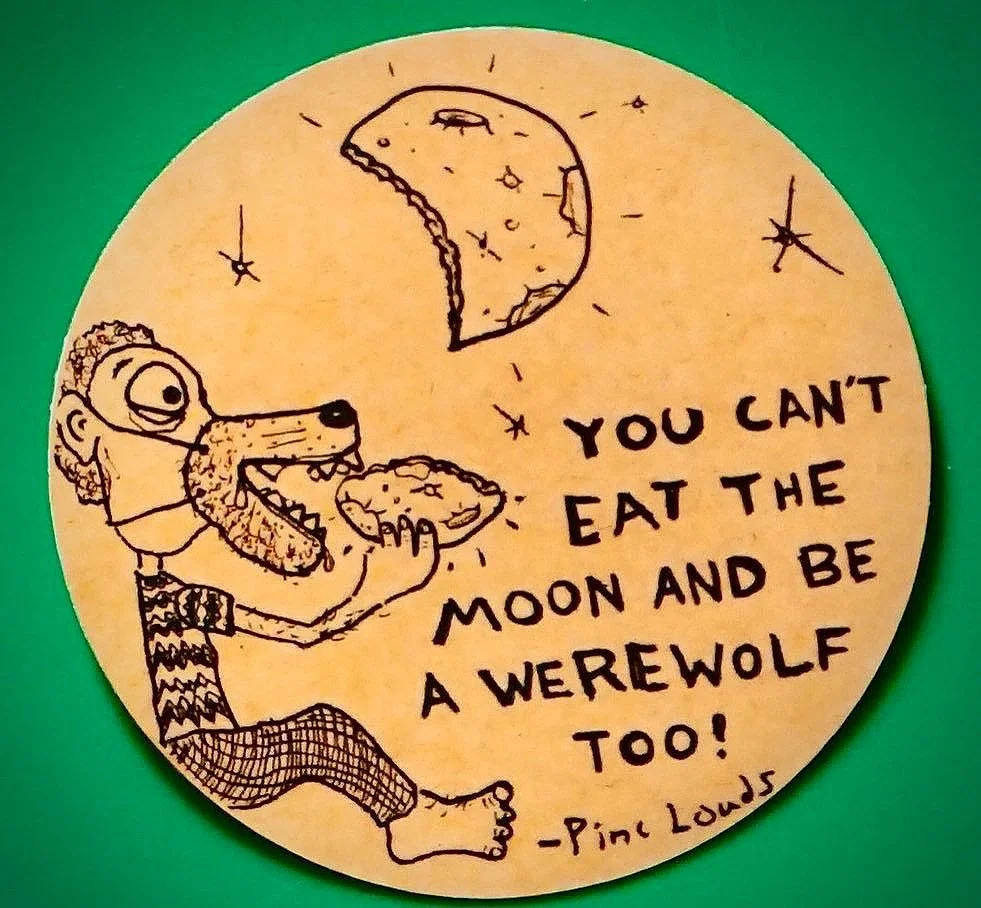 YOU CAN'T
EAT THE
MOON AND BE
A WEREWOLF
TOO!
-Pinc Louds